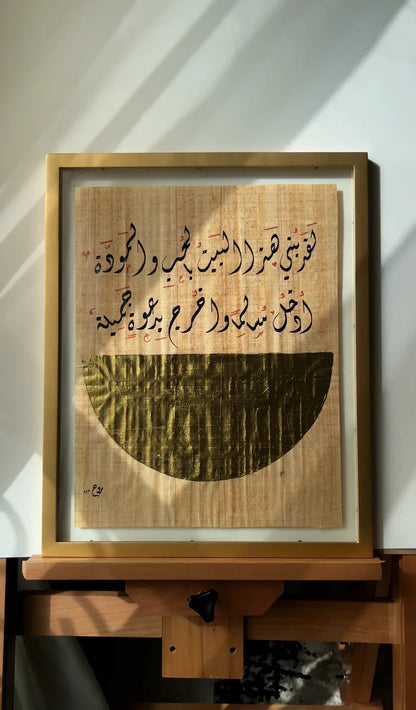 لقد بُني هذا البيتُ بالحُب والمَودَّة
أُدخُل سالِمًا واخرُج بِدعوةٍ جَميلة